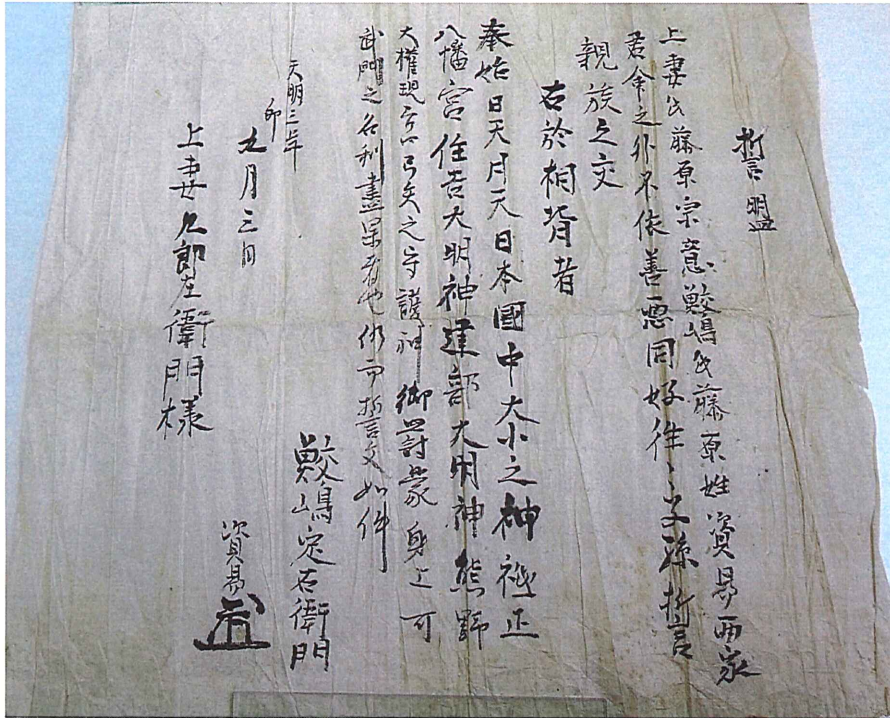 誓盟
上妻氏藤原宗意鮫嶋氏藤原姓資易両家
君命之外不依善悪同好往々子孫誓言
親族之交
右於相背者
奉始日天月天日本國中大小之神祇正
八幡宮住吉大明神建部大明神熊野
大権現弓矢之守護神御罸蒙身上可
武門之名利盡果者也仍而誓文如件
天明三年
卯
九月三日
鮫嶋定右衛門
資易
上妻九郎左衛門様